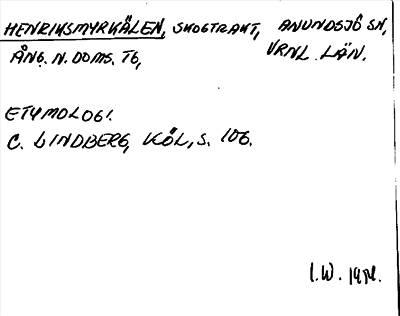 HENRIKSMYRKÄLEN, SKOGTRAKT, ANUNDSJÖ SN,
ÅNG. N. DOMS. TG, VRNL. LÄN.
ETYMOLOGI.
C. LINDBERG, KÖL, S. 106.
I.W.